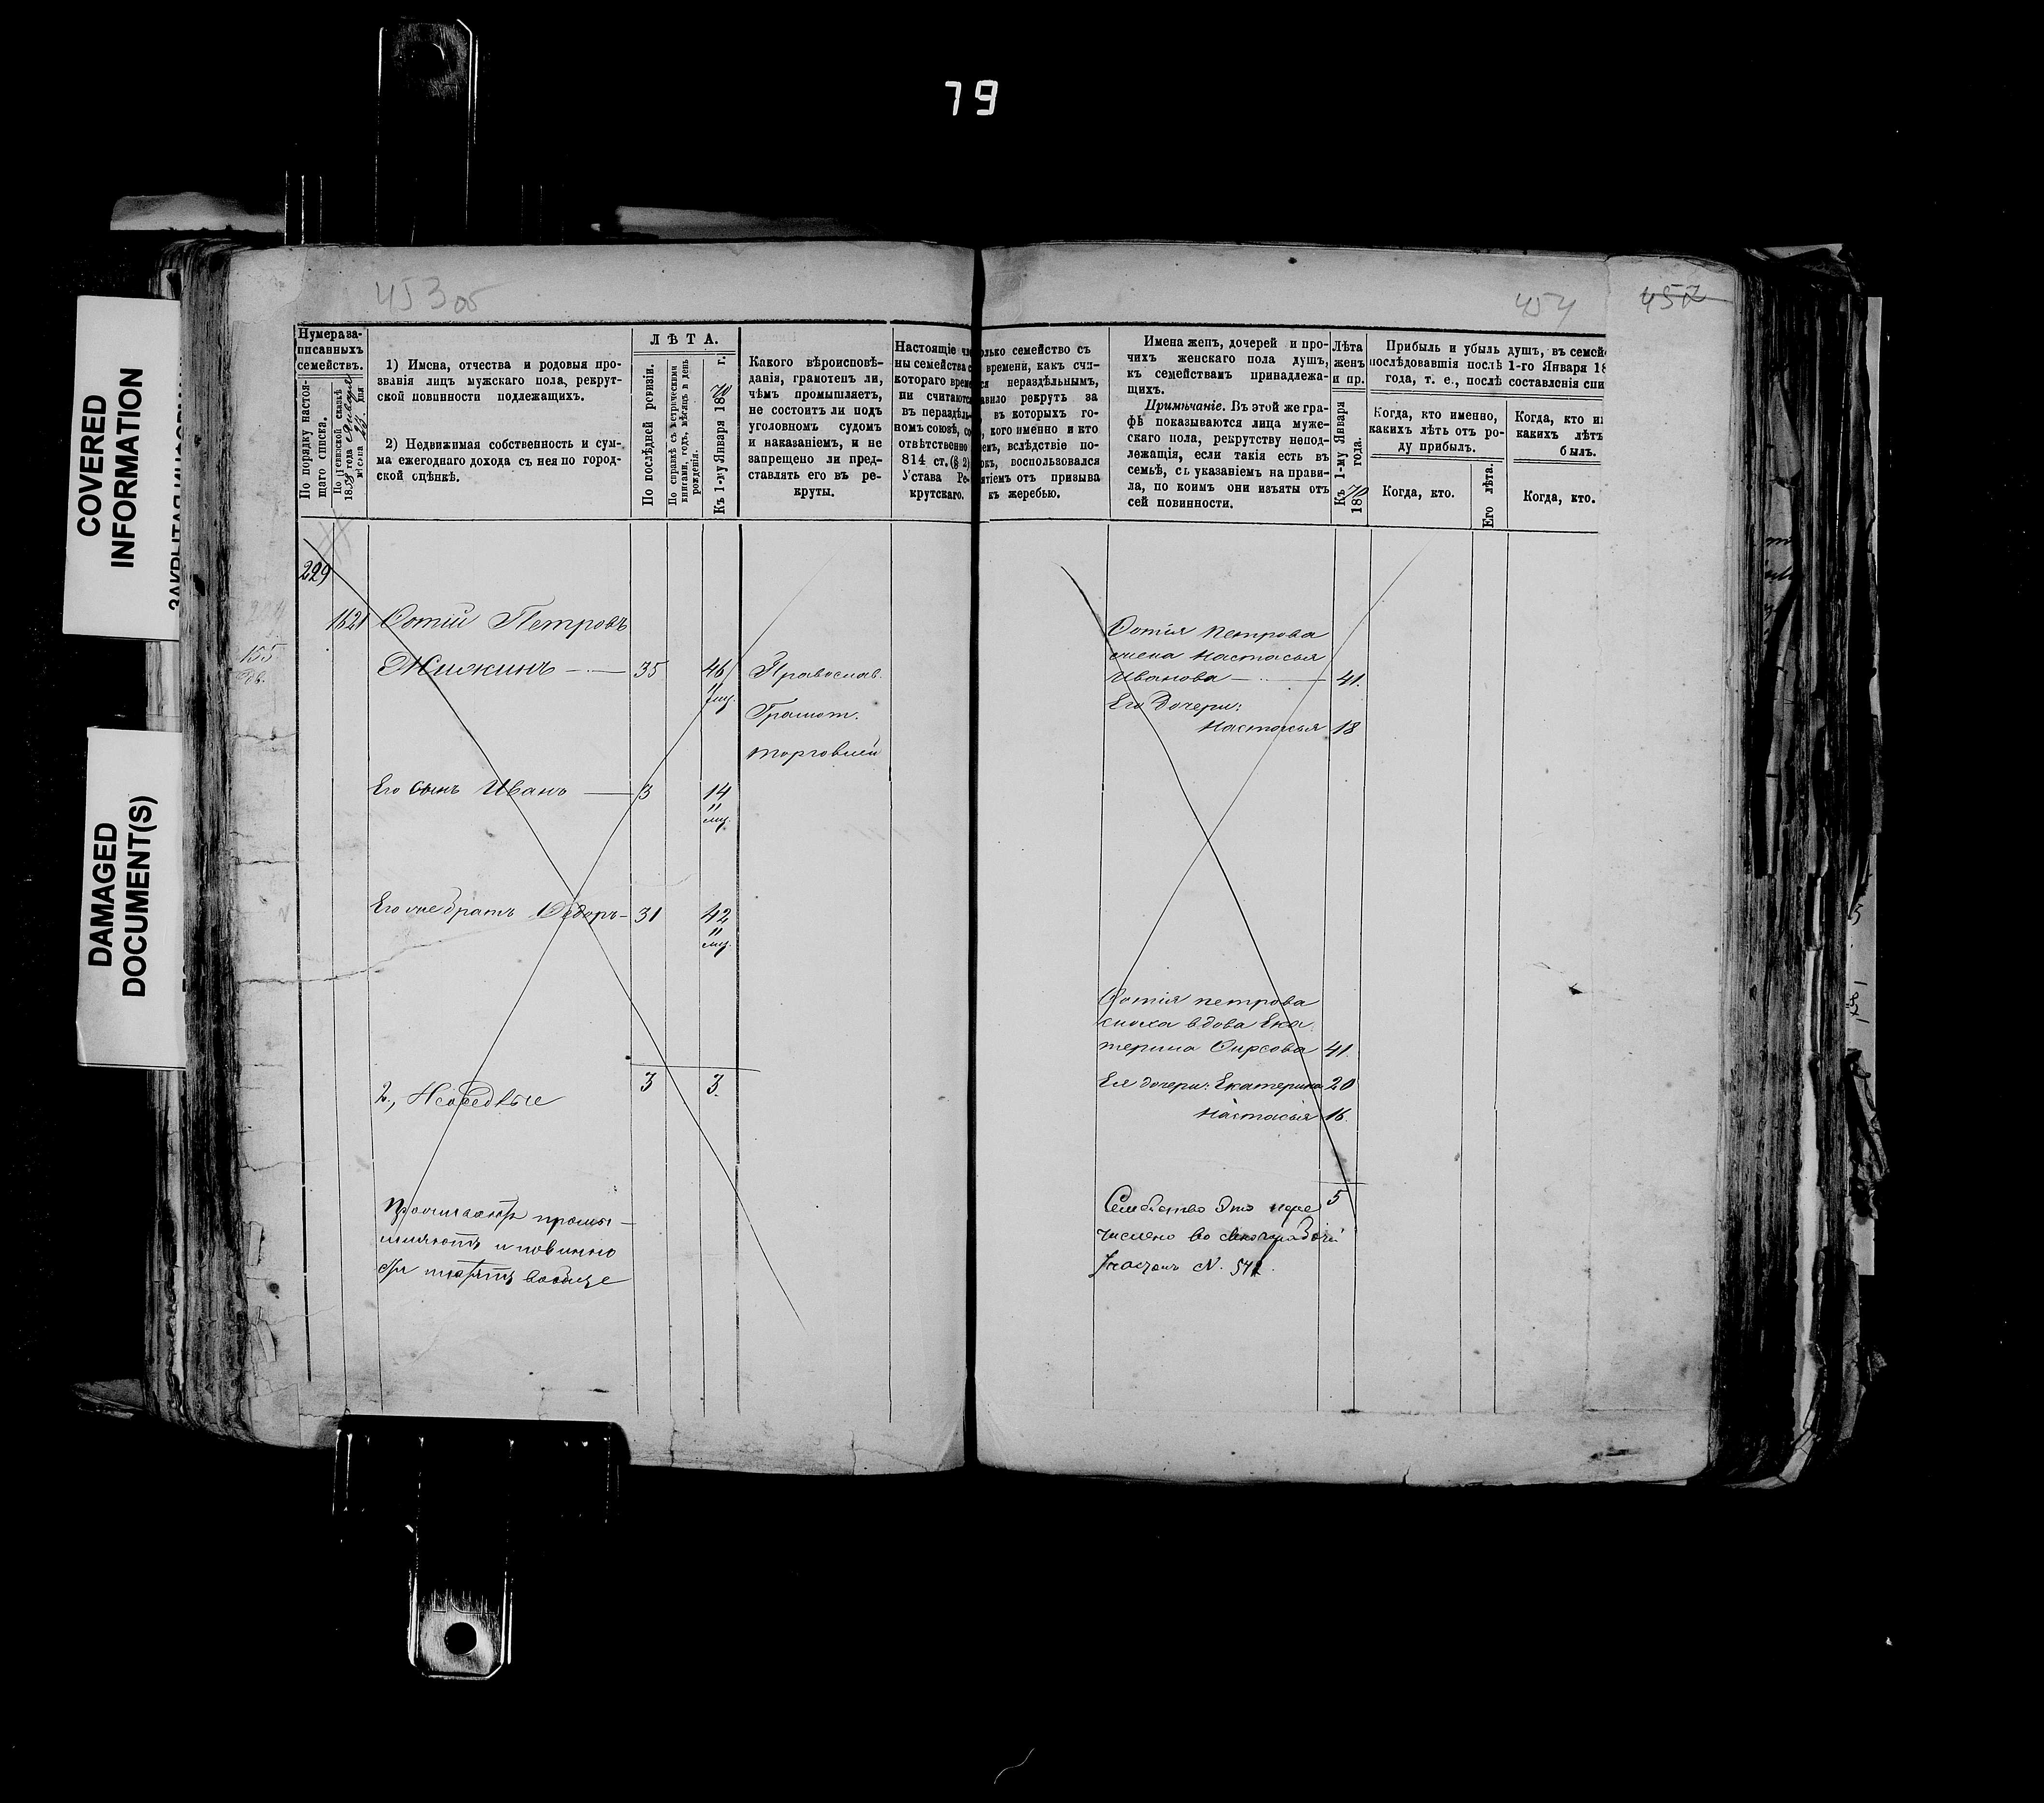 79
COVERED
INFORMATION
DAMAGED
DOCUMENT(S)
453 об
Нумера за-
писанныхъ
семействъ.
По порядку настоя-
щаго списка.
1) Имена, отчества и родовыя про-
званія лицъ мужскаго пола, рекрут-
ской повинности подлежащихъ.
2) Недвижимая собственность и сум-
ма ежегоднаго дохода съ нея по город-
ской оцѣнкѣ.
ЛѢТА.
По послѣдней ревизіи.
По справкѣ съ метрическими
книгами, годъ, мѣсяцъ и день
рожденія.
Къ 1-му Января 1870 г.
Какого вѣроисповѣ-
данія, грамотенъ ли,
чѣмъ промышляетъ,
не состоитъ ли подъ
уголовномъ судомъ
и наказаніемъ, и не
запрещено ли пред-
ставлять его въ ре-
круты.
Настоящіе
ны семейства
котораго
ни считаются
въ нераздѣль-
номъ союзѣ,
отвѣтственно
814 ст. (§ 2)
Устава Ре-
крутскаго.
229
1821 Фотій Петровъ
155
Жижкинъ 35 46 Православ.
Грамот.
торговлей
Его сынъ Иванъ 3 14
Его же братъ Федоръ 31 42
3 3.
2,
454
457
семейство съ
времени, какъ счи-
нераздѣльнымъ,
рекрутъ за
въ которыхъ го-
кого именно и кто
вслѣдствіе по-
воспользовался
отъ призыва
къ жеребью.
Имена женъ, дочерей и про-
чихъ женскаго пола душъ,
къ семействамъ принадлежа-
щихъ.
Примѣчаніе. Въ этой же гра-
фѣ показываются лица муже-
скаго пола, рекрутству непод-
лежащія, если такія есть въ
семьѣ, съ указаніемъ на прави-
ла, по коимъ они изъяты отъ
сей повинности.
Лѣта
женъ
и пр.
Къ 1-му Января
1870 года.
Прибыль и убыль душъ, въ семей
послѣдовавшія послѣ 1-го Января 18
года, т. е., послѣ составленія спи
Когда, кто именно,
какихъ лѣтъ отъ ро-
ду прибылъ.
Когда, кто.
Его лѣта.
Когда, кто и
какихъ лѣтъ
былъ.
Когда, кто.
Фотія Петрова
жена Настасья
Иванова 41.
Его дочери:
Настасья 18
Фотія Петрова
сноха вдова Ека
терина Фирсова 41.
Ея дочери: Екатерина 20
Настасья 16.
5
Семейство это пере
числено во
N. 541.